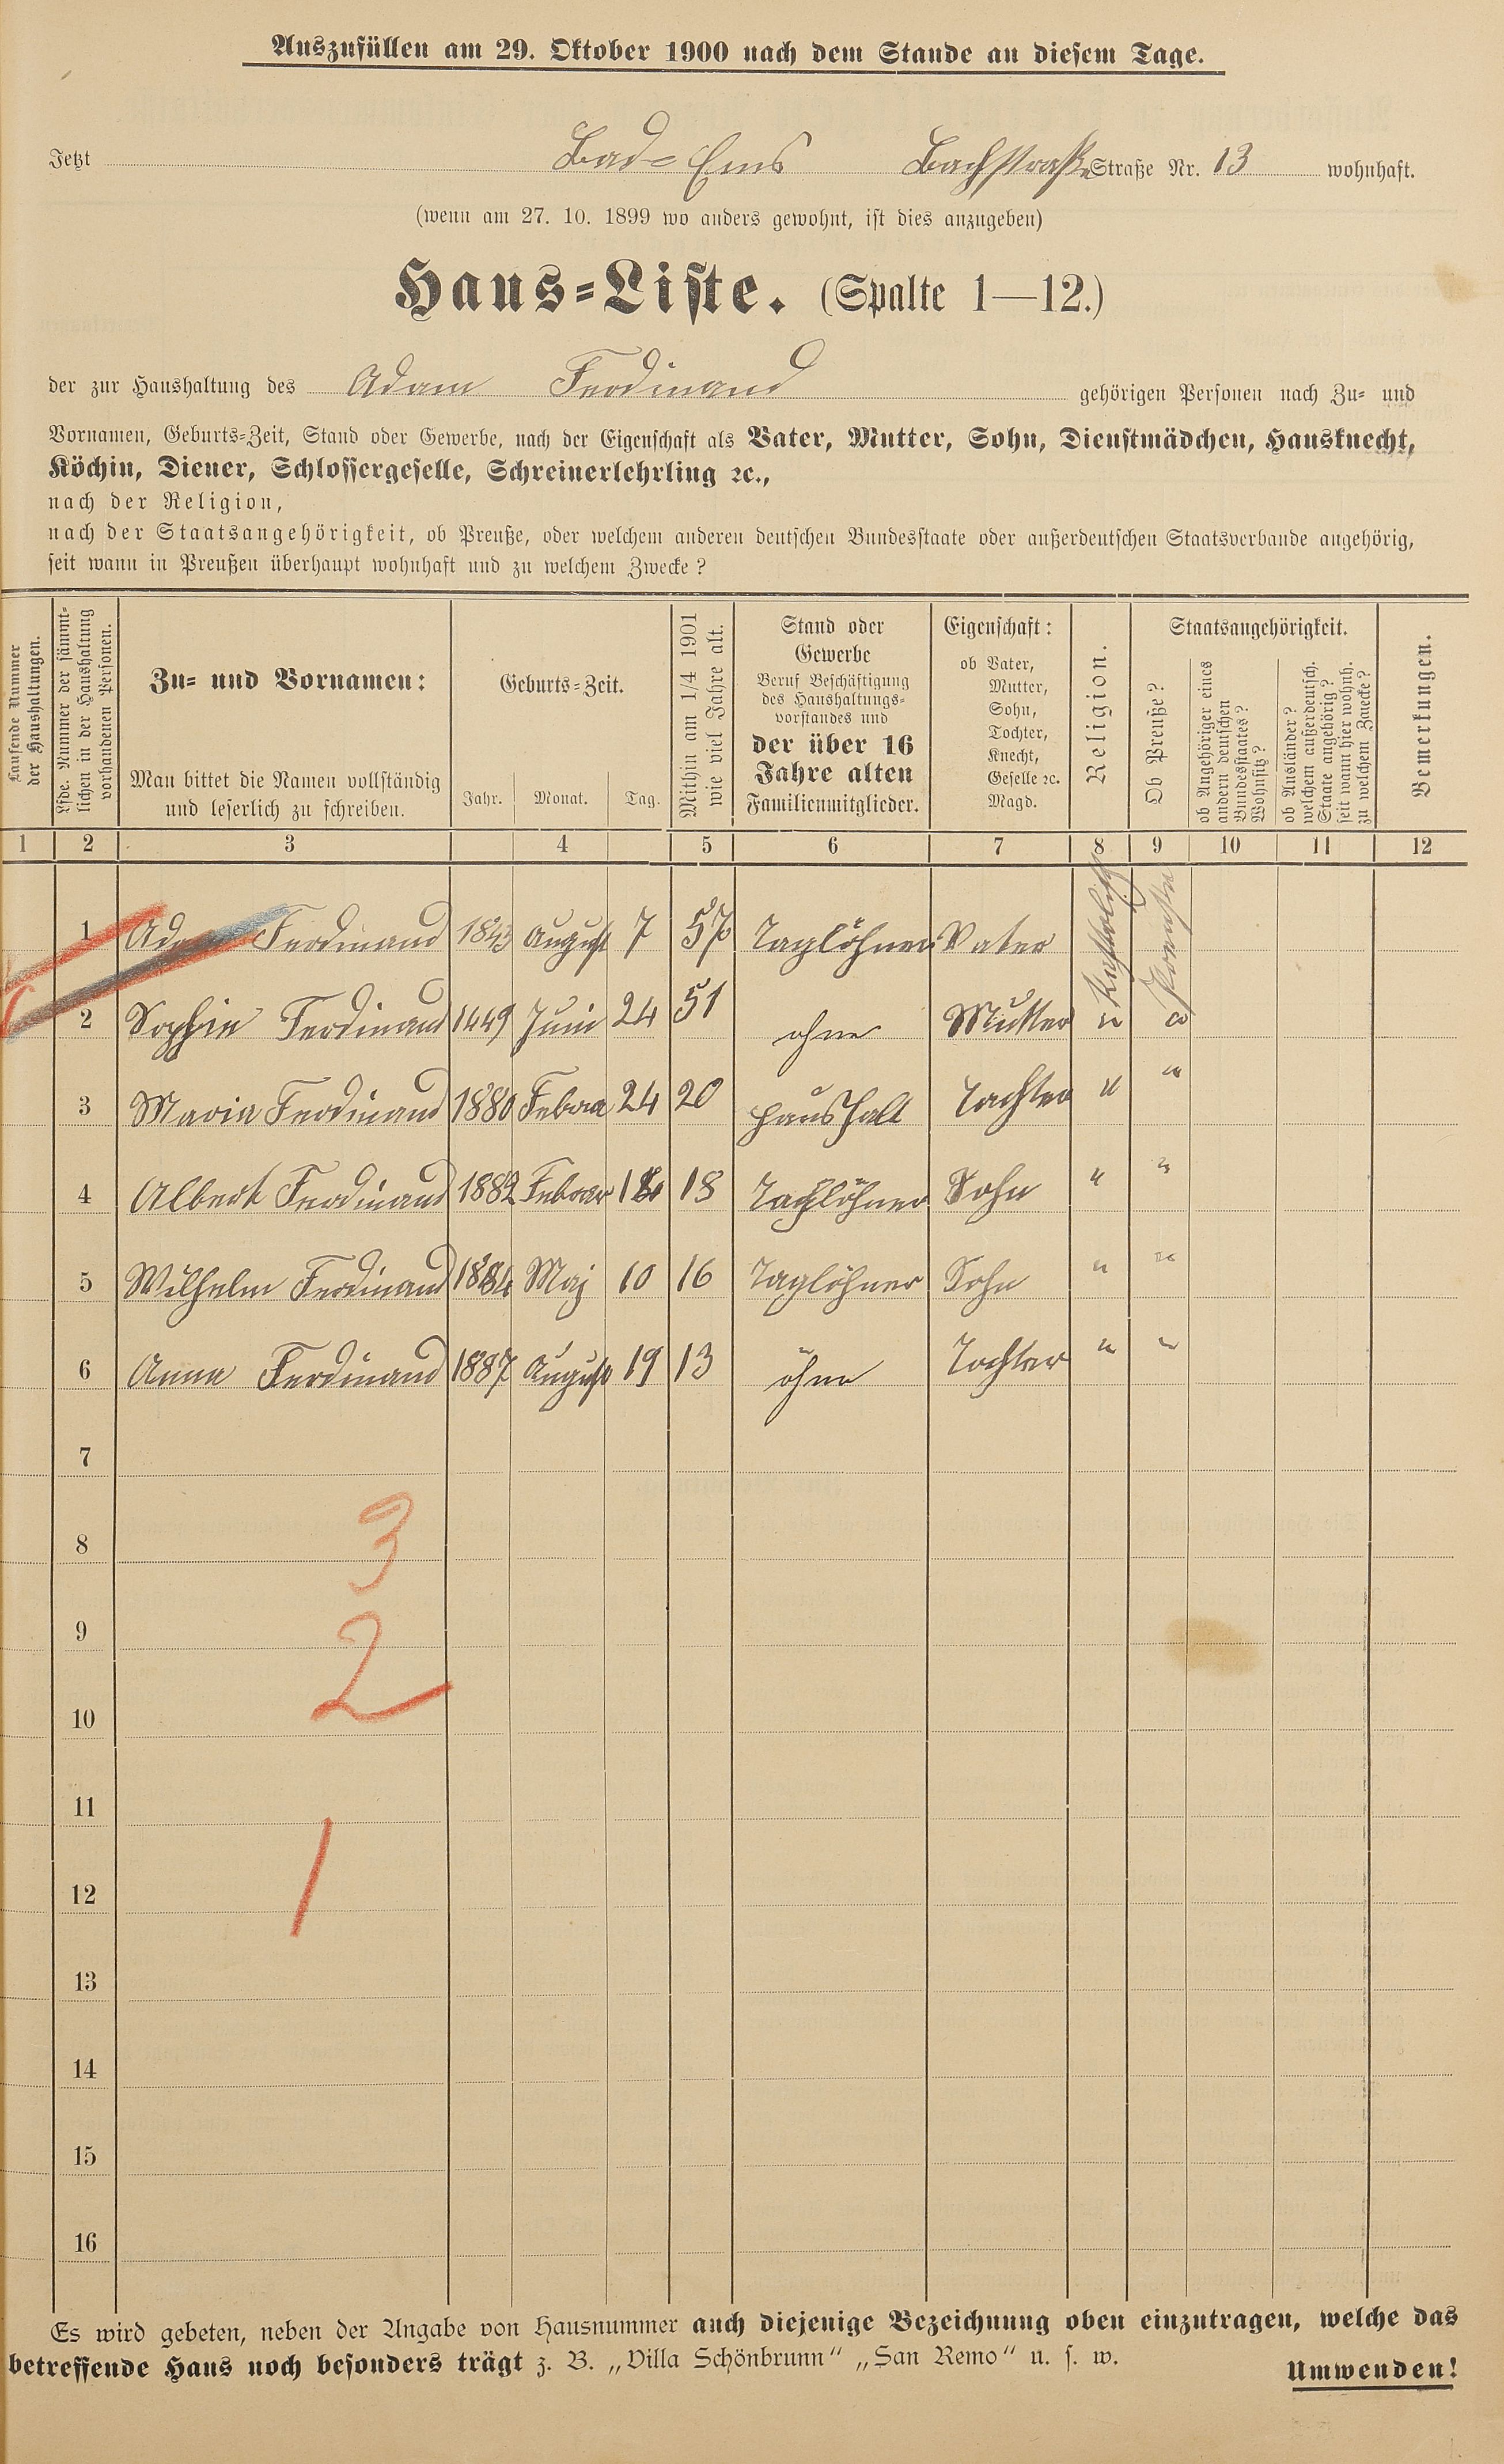 Auszufüllen am 29. Oktober 1900 nach dem Stande an diesem Tage.
Jetzt Bad-Ems Bachstraße Straße Nr. 13 wohnhaft.
(wenn am 27. 10. 1899 wo anders gewohnt, ist dies anzugeben)
Haus-Liste. (Spalte 1—12.)
der zur Haushaltung des Adam Ferdinand gehörigen Personen nach Zu- und
Vornamen, Geburts-Zeit, Stand oder Gewerbe, nach der Eigenschaft als Vater, Mutter, Sohn, Dienstmädchen, Hausknecht,
Köchin, Diener, Schlossergeselle, Schreinerlehrling ꝛc.,
nach der Religion,
nach der Staatsangehörigkeit, ob Preuße, oder welchem anderen deutschen Bundesstaate oder außerdeutschen Staatsverbande angehörig,
seit wann in Preußen überhaupt wohnhaft und zu welchem Zwecke?
Laufende Nummer
der Haushaltungen.
Lfde. Nummer der sämmt-
lichen in der Haushaltung
vorhandenen Personen.
Zu- und Vornamen:
Man bittet die Namen vollständig
und leserlich zu schreiben.
Geburts-Zeit.
Jahr. Monat. Tag.
Mithin am 1/4 1901
wie viel Jahre alt.
Stand oder
Gewerbe
Beruf Beschäftigung
des Haushaltungs-
vorstandes und
der über 16
Jahre alten
Familienmitglieder.
Eigenschaft:
ob Vater,
Mutter,
Sohn,
Tochter,
Knecht,
Geselle ꝛc.
Magd.
Religion.
Staatsangehörigkeit.
Ob Preuße?
ob Angehöriger eines
andern deutschen
Bundesstaates?
Wohnsitz?
ob Ausländer?
welchem außerdeutsch.
Staate angehörig?
seit wann hier wohnh.
zu welchem Zwecke?
Bemerkungen.
1 2 3 4 5 6 7 8 9 10 11 12
1 Adam Ferdinand 1843 August 7 57 Taglöhner Vater Katholisch Preuße
2 Sophie Ferdinand 1449 Juni 24 51 ohne Mutter " "
3 Maria Ferdinand 1880 Februa 24 20 Haushalt Tochter " "
4 Albert Ferdinand 1882 Februar 18 Taglöhner Sohn " "
5 Wilhelm Ferdinand 1884 Mai 10 16 Taglöhner Sohn " "
6 Anna Ferdinand 1887 August 19 13 ohne Tochter " "
7
8
3
9
2
10
11
1
12
13
14
15
16
Es wird gebeten, neben der Angabe von Hausnummer auch diejenige Bezeichnung oben einzutragen, welche das
betreffende Haus noch besonders trägt z. B. „Villa Schönbrunn“ „San Remo“ u. s. w.
Umwenden!